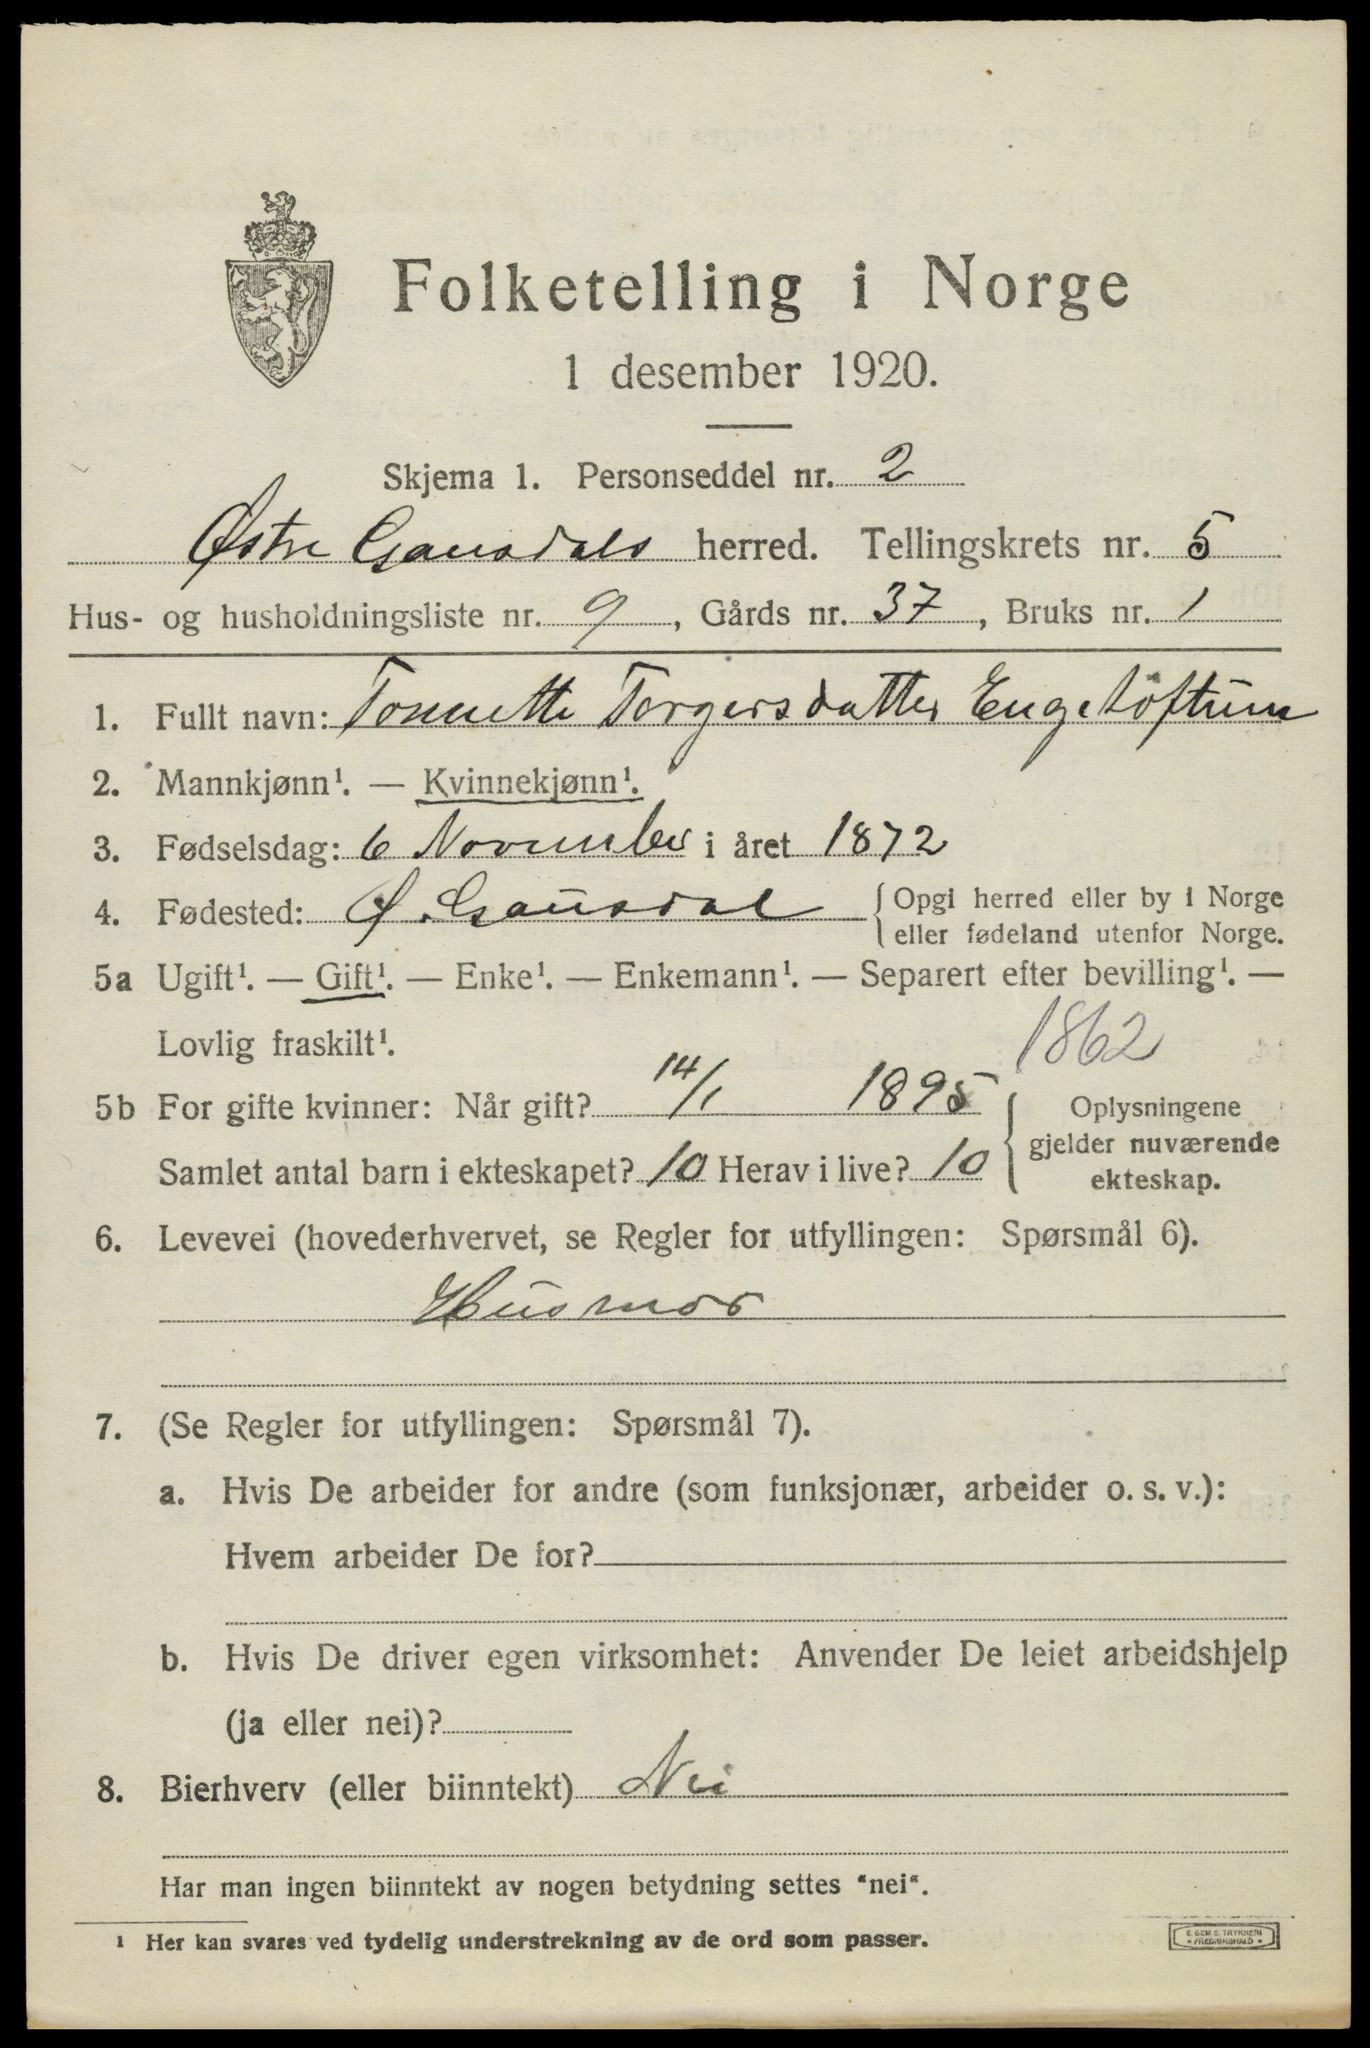 Folketelling i Norge
1 desember 1920.
Skjema 1. Personseddel nr. 2
Østre Gausdals herred. Tellingskrets nr. 5
Hus- og husholdningsliste nr. 9, Gårds nr. 37, Bruks nr. 1
1. Fullt navn: Tonnette Torgersdatter Engeløftum
2. Mannkjønn¹. — Kvinnekjønn¹.
3. Fødselsdag: 6 November i året 1872
4. Fødested: Ø. Gausdal { Opgi herred eller by i Norge
eller fødeland utenfor Norge.
5a Ugift¹. — Gift¹. — Enke¹. — Enkemann¹. — Separert efter bevilling¹. —
Lovlig fraskilt¹.
1862
5b For gifte kvinner: Når gift? 14/1 1895
Samlet antal barn i ekteskapet? 10 Herav i live? 10
{ Oplysningene
gjelder nuværende
ekteskap.
6. Levevei (hovederhvervet, se Regler for utfyllingen: Spørsmål 6).
Husmor
7. (Se Regler for utfyllingen: Spørsmål 7).
a. Hvis De arbeider for andre (som funksjonær, arbeider o. s. v.):
Hvem arbeider De for?
b. Hvis De driver egen virksomhet: Anvender De leiet arbeidshjelp
(ja eller nei)?
8. Bierhverv (eller biinntekt) Nei
Har man ingen biinntekt av nogen betydning settes "nei".
¹ Her kan svares ved tydelig understrekning av de ord som passer.
E. SEM'S TRYKKERI
FREDRIKSHALD